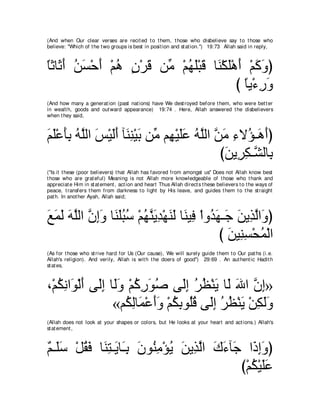 (And when Our clear verses are recited to them, those who disbelieve say to those who
believe: "Which of the two groups is best in position and station.") 19:73 Allah said in reply,
وَكَمْ أَهْلَكْنَا قَبْلَهُمْ مِّن قَرْنٍ هُمْ أَحْسَنُ أَثَاثاً
وَرِءْياً )
(And how many a generation (past nations) have We destroyed before them, who were better
in wealth, goods and outward appearance) 19:74 . Here, Allah answered the disbelievers
when they said,
(أَهَـؤُلاءِ مَنَّ اللَّهُ عَلَيْهِم مِّن بَيْنِنَآ أَلَيْسَ اللَّهُ بِأَعْلَمَ
بِالشَّـكِرِينَ)
("Is it these (poor believers) that Allah has favored from amongst us" Does not Allah know best
those who are grateful) Meaning is not Allah more knowledgeable of those who thank and
appreciate Him in statement, action and heart Thus Allah directs these believers to the ways of
peace, transfers them from darkness to light by His leave, and guides them to the straight
path. In another Ayah, Allah said,
(وَالَّذِينَ جَـهَدُوا فِينَا لَنَهْدِيَنَّهُمْ سُبُلَنَا وَإِنَّ اللَّهَ لَمَعَ
الْمُحْسِنِينَ )
(As for those who strive hard for Us (Our cause), We will surely guide them to Our paths (i.e.
Allah's religion). And verily, Allah is with the doers of good") 29:69 . An authentic Hadith
states,
«إِنَّ اللهَ لَا يَنْظُرُ إِلَى صُوَرِكُمْ وَلَا إِلَى أَلْوَانِكُمْ،
وَلكِنْ يَنْظُرُ إِلَى قُلُوبِكُمْ وَأَعْمَالِكُم»
(Allah does not look at your shapes or colors, but He looks at your heart and actions.) Allah's
statement,
(وَإِذَا جَآءَكَ الَّذِينَ يُؤْمِنُونَ بِـَايَـتِنَا فَقُلْ سَلَـمٌ
عَلَيْكُمْ)